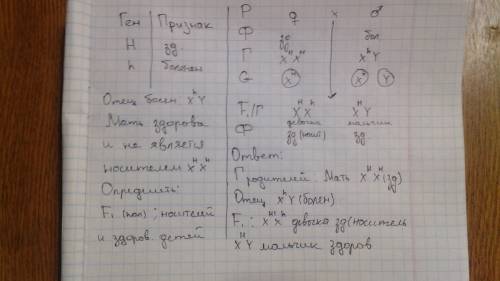 Ген | Признак
H | зд.
h | болезен
Отец болен X^h Y
Мать здорова
и не является
носителем X^H X^H
Определить:
F₁ (пол) ; носителей
и здоров. детей
P ♀ x ♂
Ф зд бол
Г X^H X^H X^h Y
G X^H X^h Y
F₁/Г X^H X^h X^H Y
Ф девочка мальчик
зд (носит) зд
Ответ:
Г родителей. Мать X^H X^H (зд)
Отец X^h Y (болен)
F₁ : X^H X^h девочка зд (носитель
X^H Y мальчик здоров